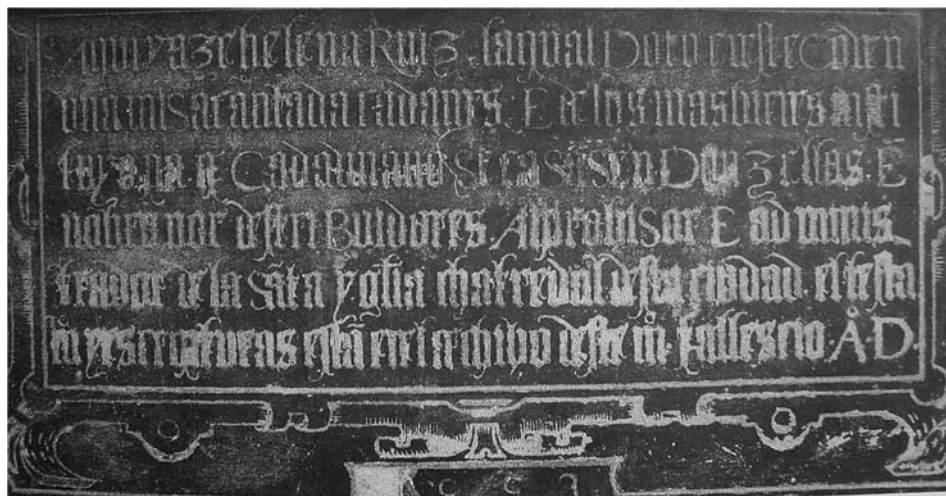 Aqui yaze helena Ruiz. la qual Doto en este Cōven
una missa cantada cadames. E de sus mas bienes insti
cada un año Se casasen Donzellas. E
nobro por distri Buidores Al provisor E ad minis
trador de la Sāta yglia chatredal desta ciudad. el testa
escrituras estā en el archibo deste m̊. Fallescio. Å. D.